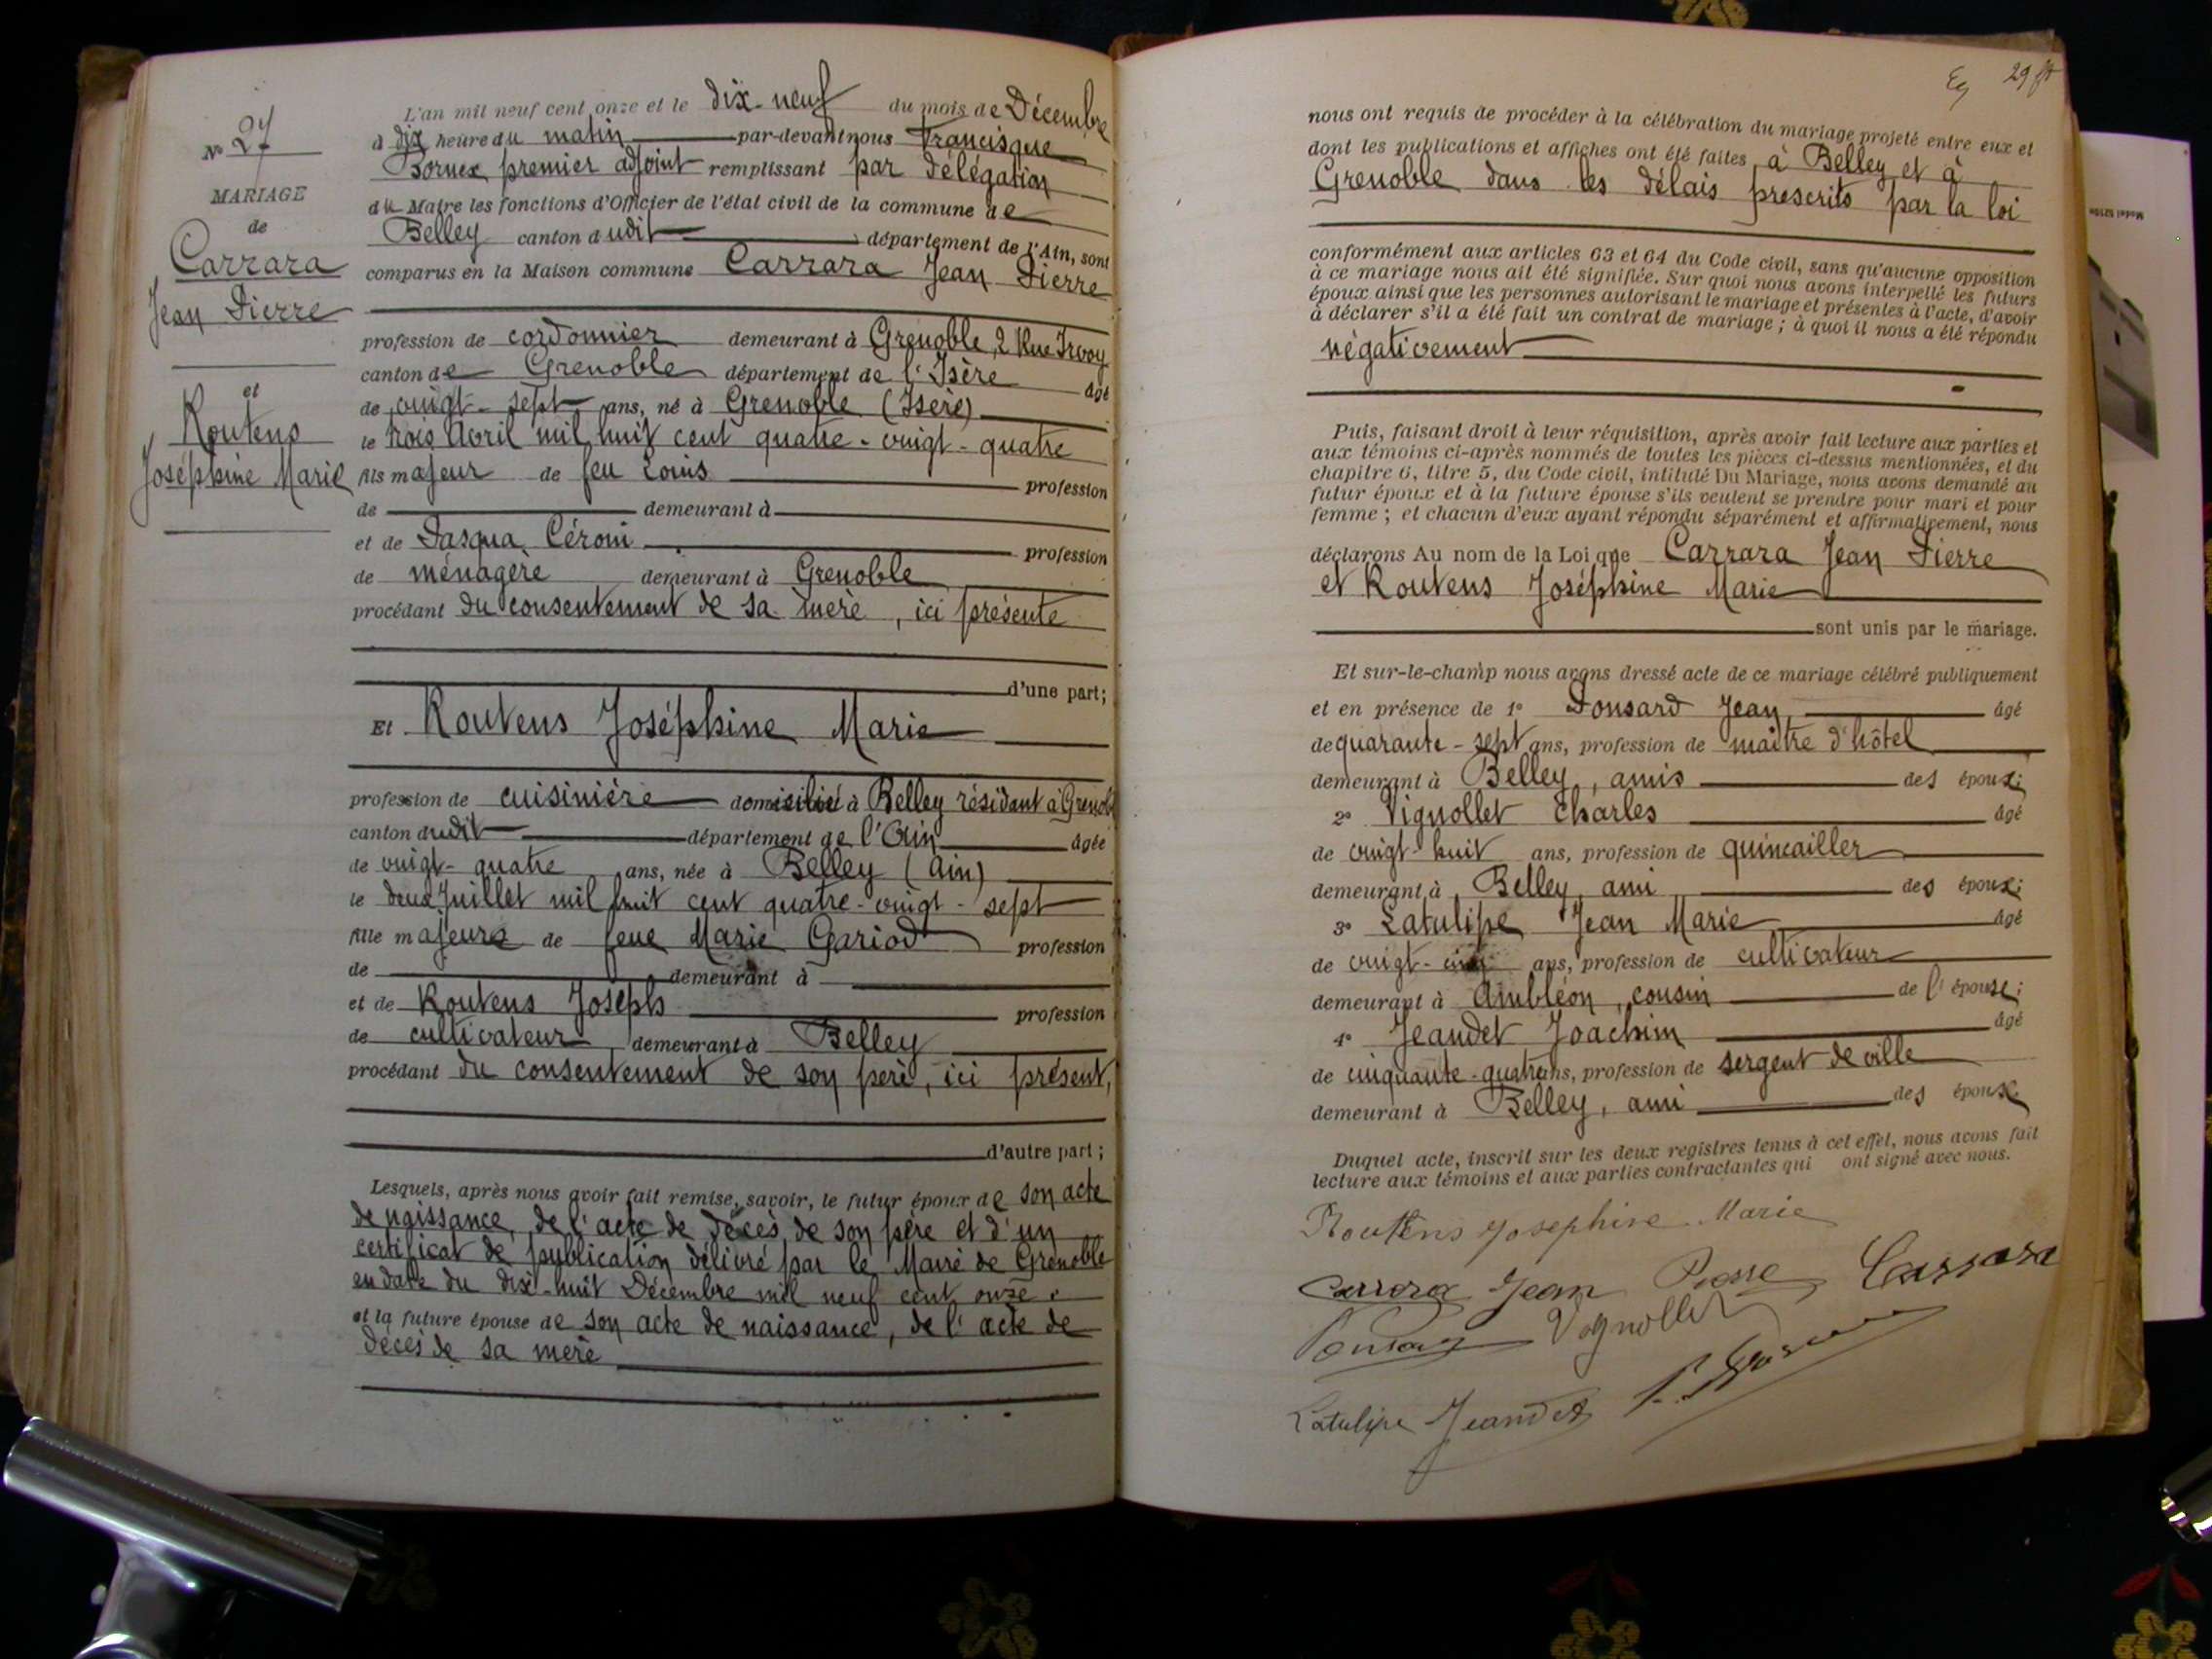 N° 27
MARIAGE
de
Carrara
Jean Pierre
et
Routens
Joséphine Marie
L'an mil neuf cent onze et le dix-neuf du mois de Décembre
à dix heure du matin par-devant nous Francisque
Bornex premier adjoint remplissant par délégation
du Maire les fonctions d'Officier de l'état civil de la commune de
Belley canton dudit département de l'Ain, sont
comparus en la Maison commune Carrara Jean Pierre
profession de cordonnier demeurant à Grenoble, 2 Rue Irvoy
canton de Grenoble département de l'Isère âgé
de vingt-sept ans, né à Grenoble (Isère)
le trois Avril mil huit cent quatre-vingt-quatre
fils majeur de feu Louis profession
de demeurant à
et de Pasqua Céroni profession
de ménagère demeurant à Grenoble
procédant du consentement de sa mère, ici présente
d'une part;
Et Routens Joséphine Marie
profession de cuisinière domicilié à Belley résidant à Grenoble
canton dudit département de l'Ain âgée
de vingt-quatre ans, née à Belley (Ain)
le deux Juillet mil huit cent quatre-vingt-sept
fille majeure de feue Marie Gariod profession
de demeurant à
et de Routens Joseph profession
de cultivateur demeurant à Belley
procédant du consentement de son père, ici présent,
d'autre part;
Lesquels, après nous avoir fait remise, savoir, le futur époux de son acte
de naissance, de l'acte de décès de son père et d'un
certificat de publication délivré par le Maire de Grenoble
en date du dix-huit Décembre mil neuf cent onze.
et la future épouse de son acte de naissance, de l'acte de
décès de sa mère
29
nous ont requis de procéder à la célébration du mariage projeté entre eux et
dont les publications et affiches ont été faites, à Belley et à
Grenoble dans les délais prescrits par la loi
conformément aux articles 63 et 64 du Code civil, sans qu'aucune opposition
à ce mariage nous ait été signifiée. Sur quoi nous avons interpellé les futurs
époux ainsi que les personnes autorisant le mariage et présentes à l'acte, d'avoir
à déclarer s'il a été fait un contrat de mariage; à quoi il nous a été répondu
négativement
Puis, faisant droit à leur réquisition, après avoir fait lecture aux parties et
aux témoins ci-après nommés de toutes les pièces ci-dessus mentionnées, et du
chapitre 6, titre 5, du Code civil, intitulé Du Mariage, nous avons demandé au
futur époux et à la future épouse s'ils veulent se prendre pour mari et pour
femme; et chacun d'eux ayant répondu séparément et affirmativement, nous
déclarons Au nom de la Loi que Carrara Jean Pierre
et Routens Joséphine Marie
sont unis par le mariage.
Et sur-le-champ nous avons dressé acte de ce mariage célébré publiquement
et en présence de 1° Ponsard Jean âgé
de quarante-sept ans, profession de maître d'hôtel
demeurant à Belley, amis des époux;
2° Vignollet Charles âgé
de vingt-huit ans, profession de quincailler
demeurant à Belley, ami des époux;
3° Latulipe Jean Marie âgé
de vingt-cinq ans, profession de cultivateur
demeurant à Ambléon, cousin de l'épouse;
4° Jeandet Joachim âgé
de cinquante-quatre ans, profession de sergent de ville
demeurant à Belley, ami des époux.
Duquel acte, inscrit sur les deux registres tenus à cet effet, nous avons fait
lecture aux témoins et aux parties contractantes qui ont signé avec nous.
Routens Josephine Marie
Carrara Jean Pierre Carrara
Ponsard Vignollet
Latulipe Jeandet